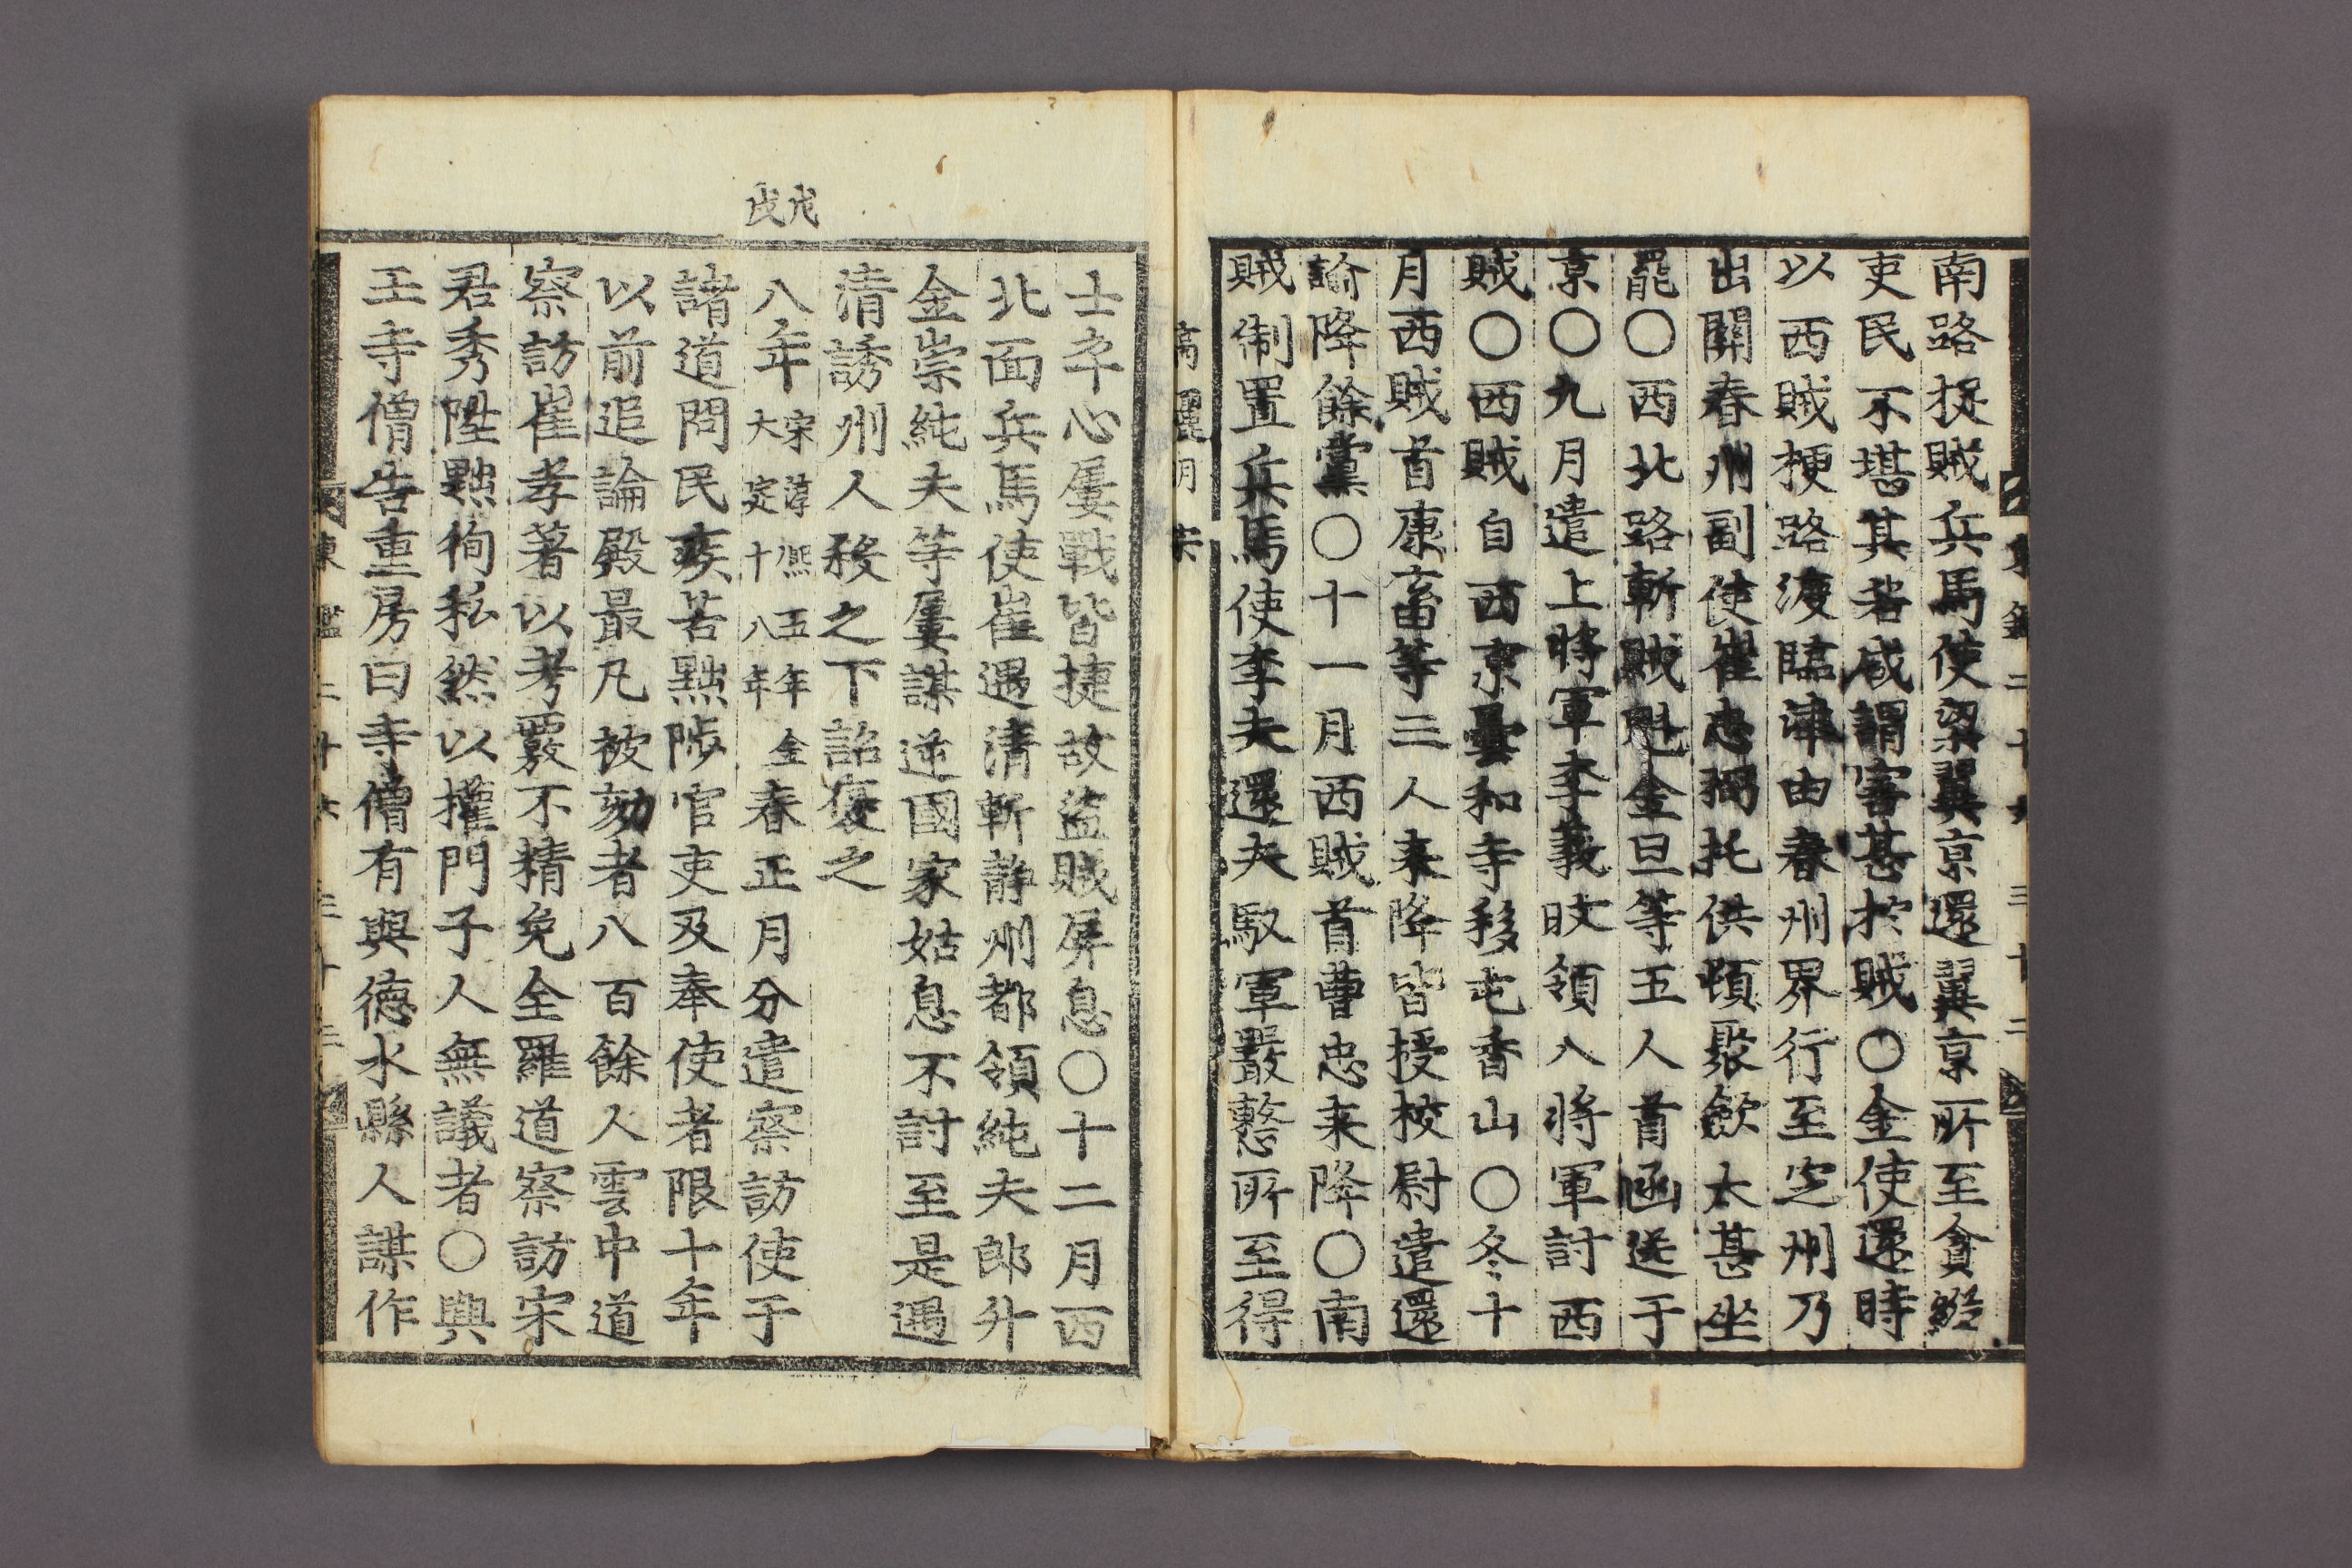 南路捉賊兵馬使梁翼京還翼京所至貪縱
吏民不堪其苦咸謂害甚於賊○金使還時
以西賊梗路渡臨津由春州界行至定州乃
出關春州副使崔忠弼托供頓聚歛太甚坐
罷○西北路斬賊魁金旦等五人首函送于
京○九月遣上將軍李義旼領八將軍討西
賊○西賊自西京曇和寺移屯香山○冬十
月西賊首康畜等三人来降皆授校尉遣還
諭降餘黨○十一月西賊首曹忠来降○南
賊制置兵馬使李夫還夫馭軍嚴整所至得
高麗明宗
士卒心屢戰皆捷故盜賊屏息○十二月西
北面兵馬使崔遇清斬静州都領純夫郎升
金崇純夫等屢謀逆國家姑息不討至是遇
清誘州人殺之下詔褒之
戊戌
八年宋淳熙五年金大定十八年春正月分遣察訪使于
諸道問民疾苦黜陟官吏及奉使者限十年
以前追論殿最凡被劾者八百餘人雲中道
察訪崔孝著以考覈不精免全羅道察訪宋
君秀陞黜徇私然以權門子人無議者○興
王寺僧告重房曰寺僧有與德水縣人謀作
東鑑二十六 三十三